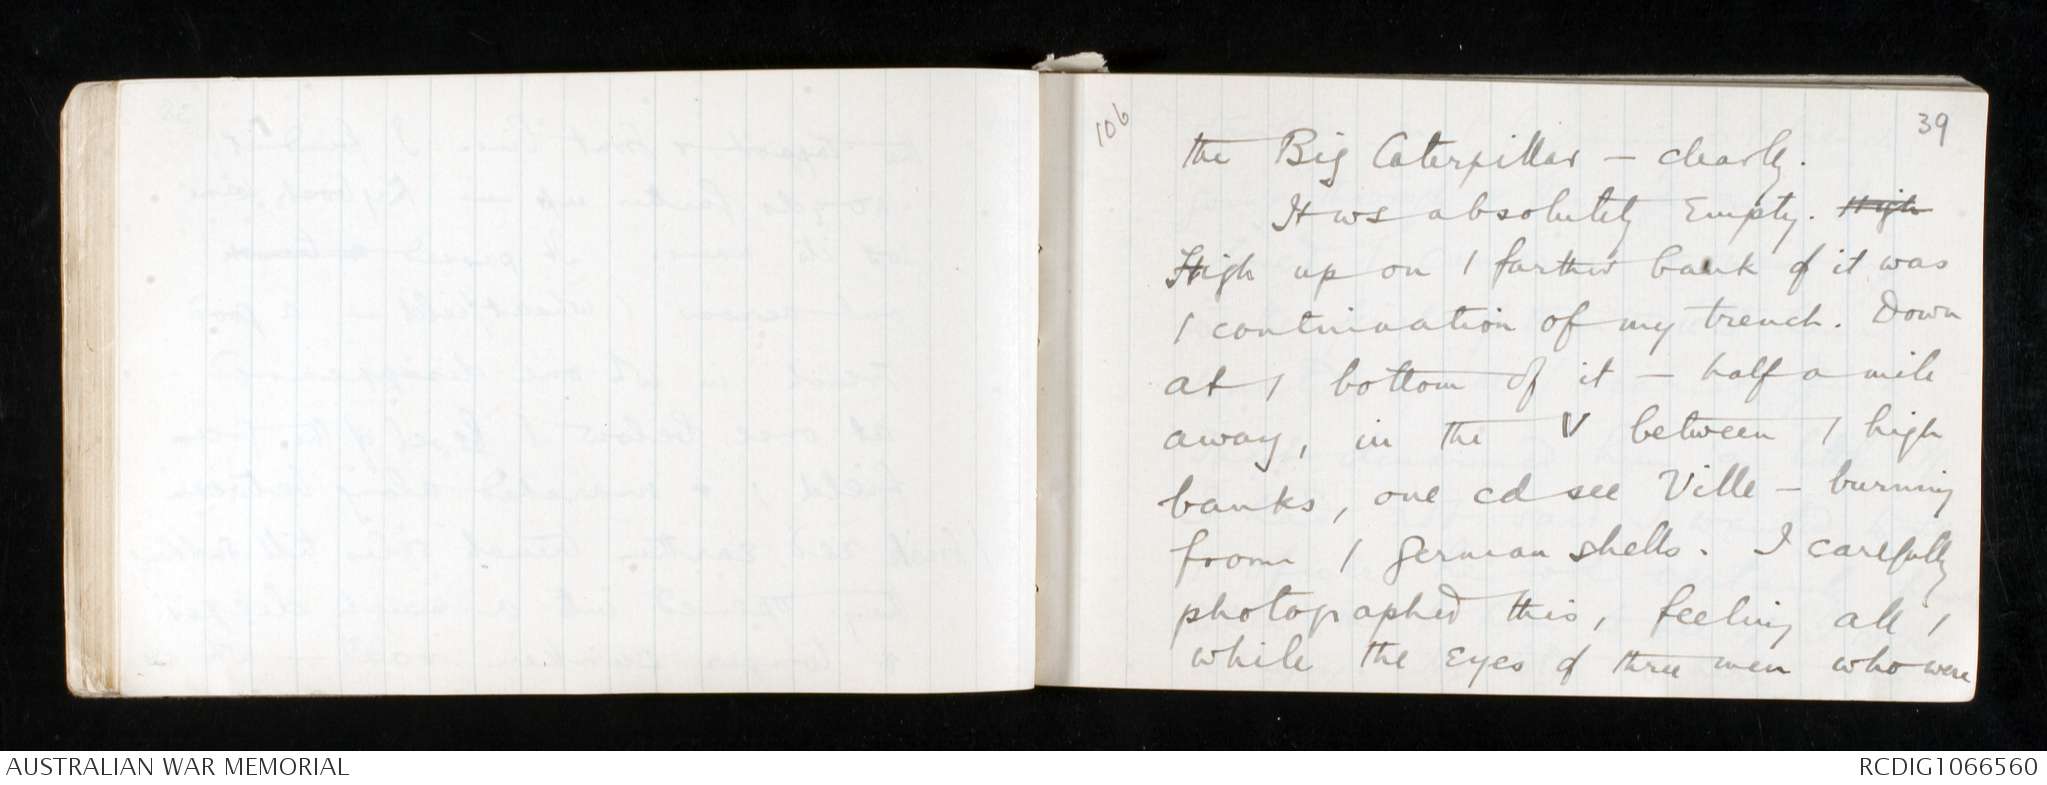 106
39
the Big Caterpillar – clearly.
It ws absolutely empty. High
High up on / farther bank of it was
/ continuation of my trench. Down
at / bottom of it – half a mile
away, in the V between / high
banks, one cd see Ville – burning
from / German shells. I carefully
photographed this, feeling all /
while the eyes of three men who were
AUSTRALIAN WAR MEMORIAL
RCDIG1066560